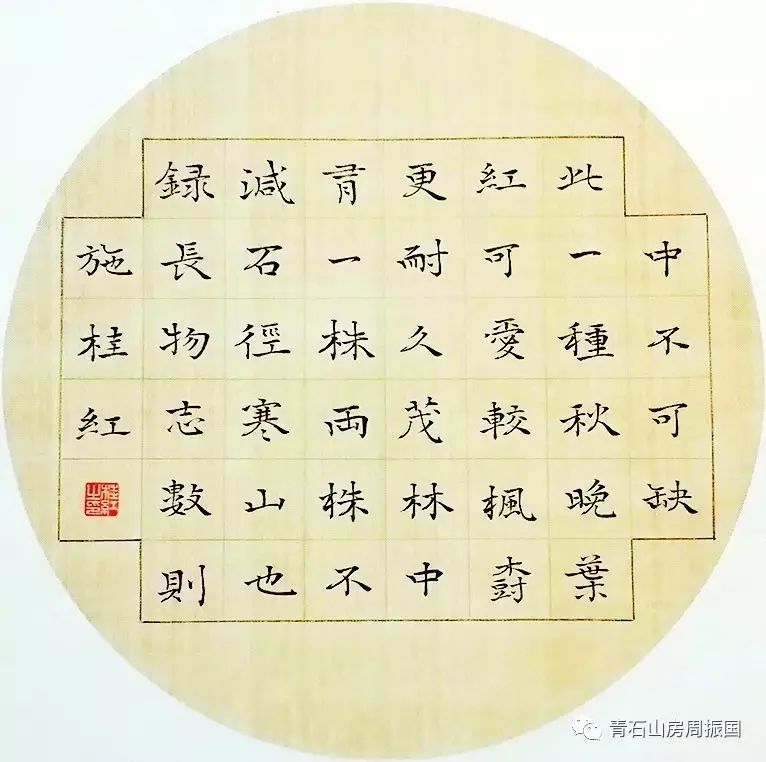 中不可缺
此一種秋晚葉
紅可愛較楓樹
更耐久茂林中
有一株両株不
減石徑寒山也
録長物志數則
施桂紅
桂紅之印
青石山房周振国